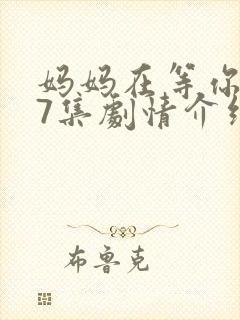 妈妈在等你
7集劇情介
布鲁克